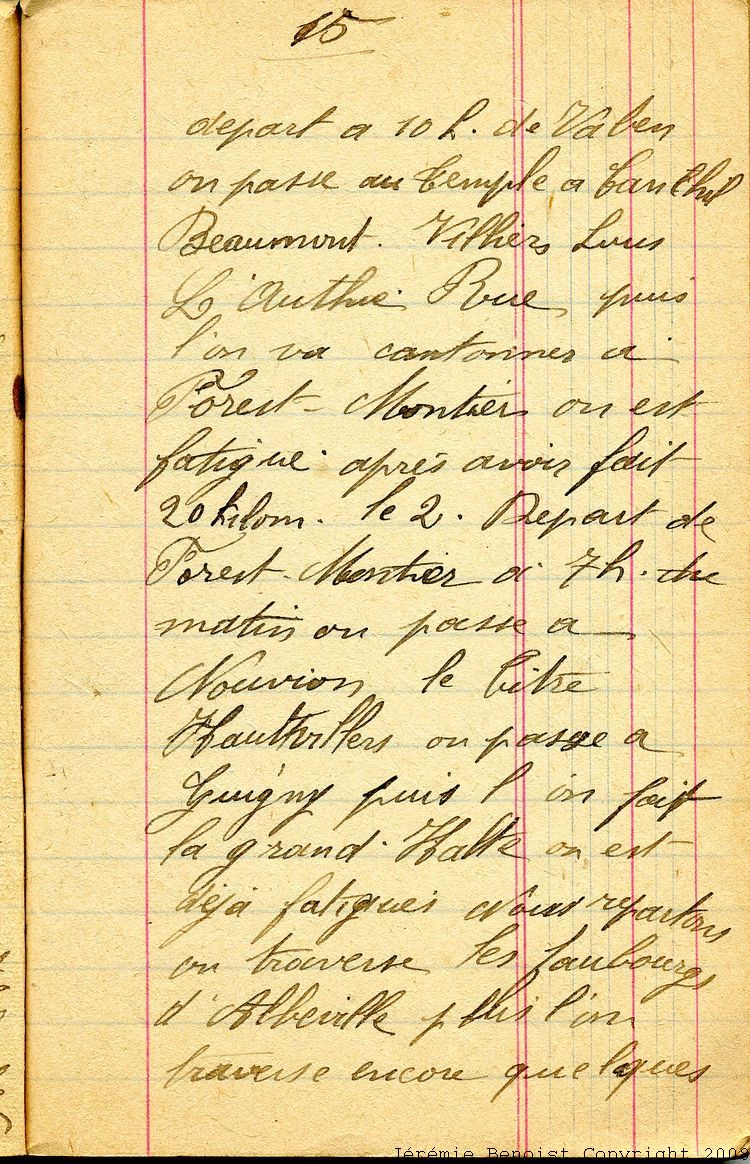 15
depart a 10 h. de Vaben
on passe au temple a Conchil
Beaumont. Villiers Sous
L'Authie Rue, puis
l'on va cantonner a
Forest-Montiers on est
fatigué. après avoir fait
20 kilom. le 2. Depart de
Forest-Montier a 7h. du
matin on passe a
Nouvion le titre
Hautvillers on passe a
Guigny puis l'on fait
la grand. Halte on est
déjà fatigués Nous repartons
on traverse les faubourgs
d'Abbeville puis l'on
traverse encore quelques
Jérémie Benoist Copyright 2008